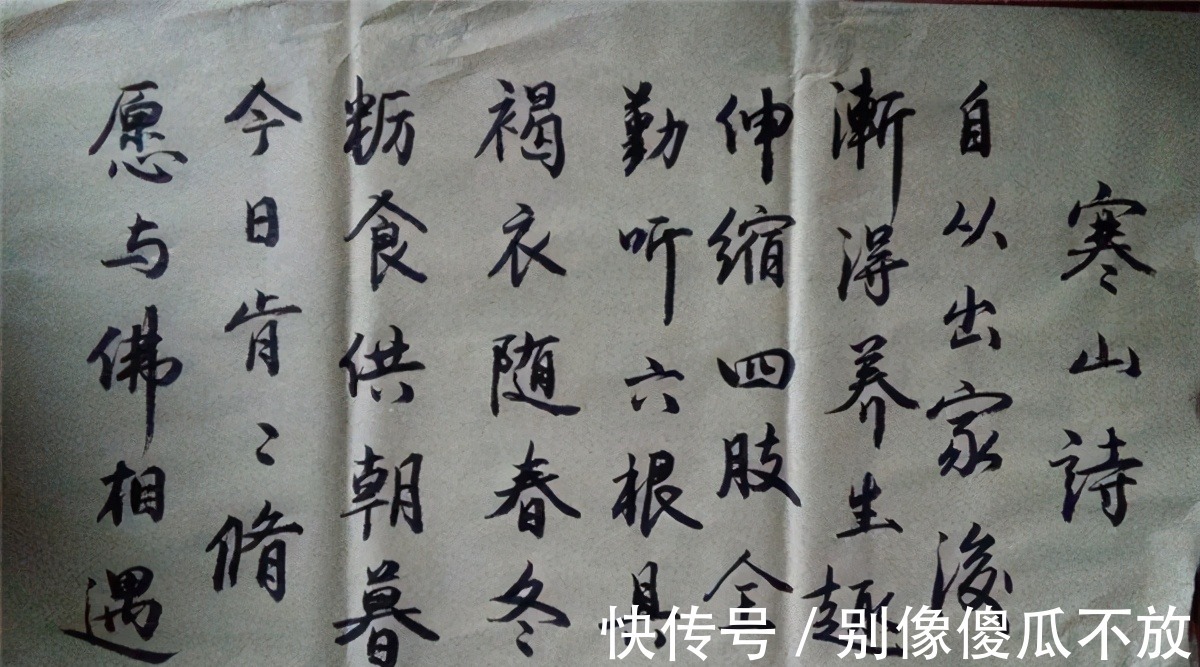 寒山詩
自从出家後
漸得养生趣
伸缩四肢全
勤听六根具
褐衣随春冬
粝食供朝暮
今日肯〻脩
愿与佛相遇
快传号/别像傻瓜不放